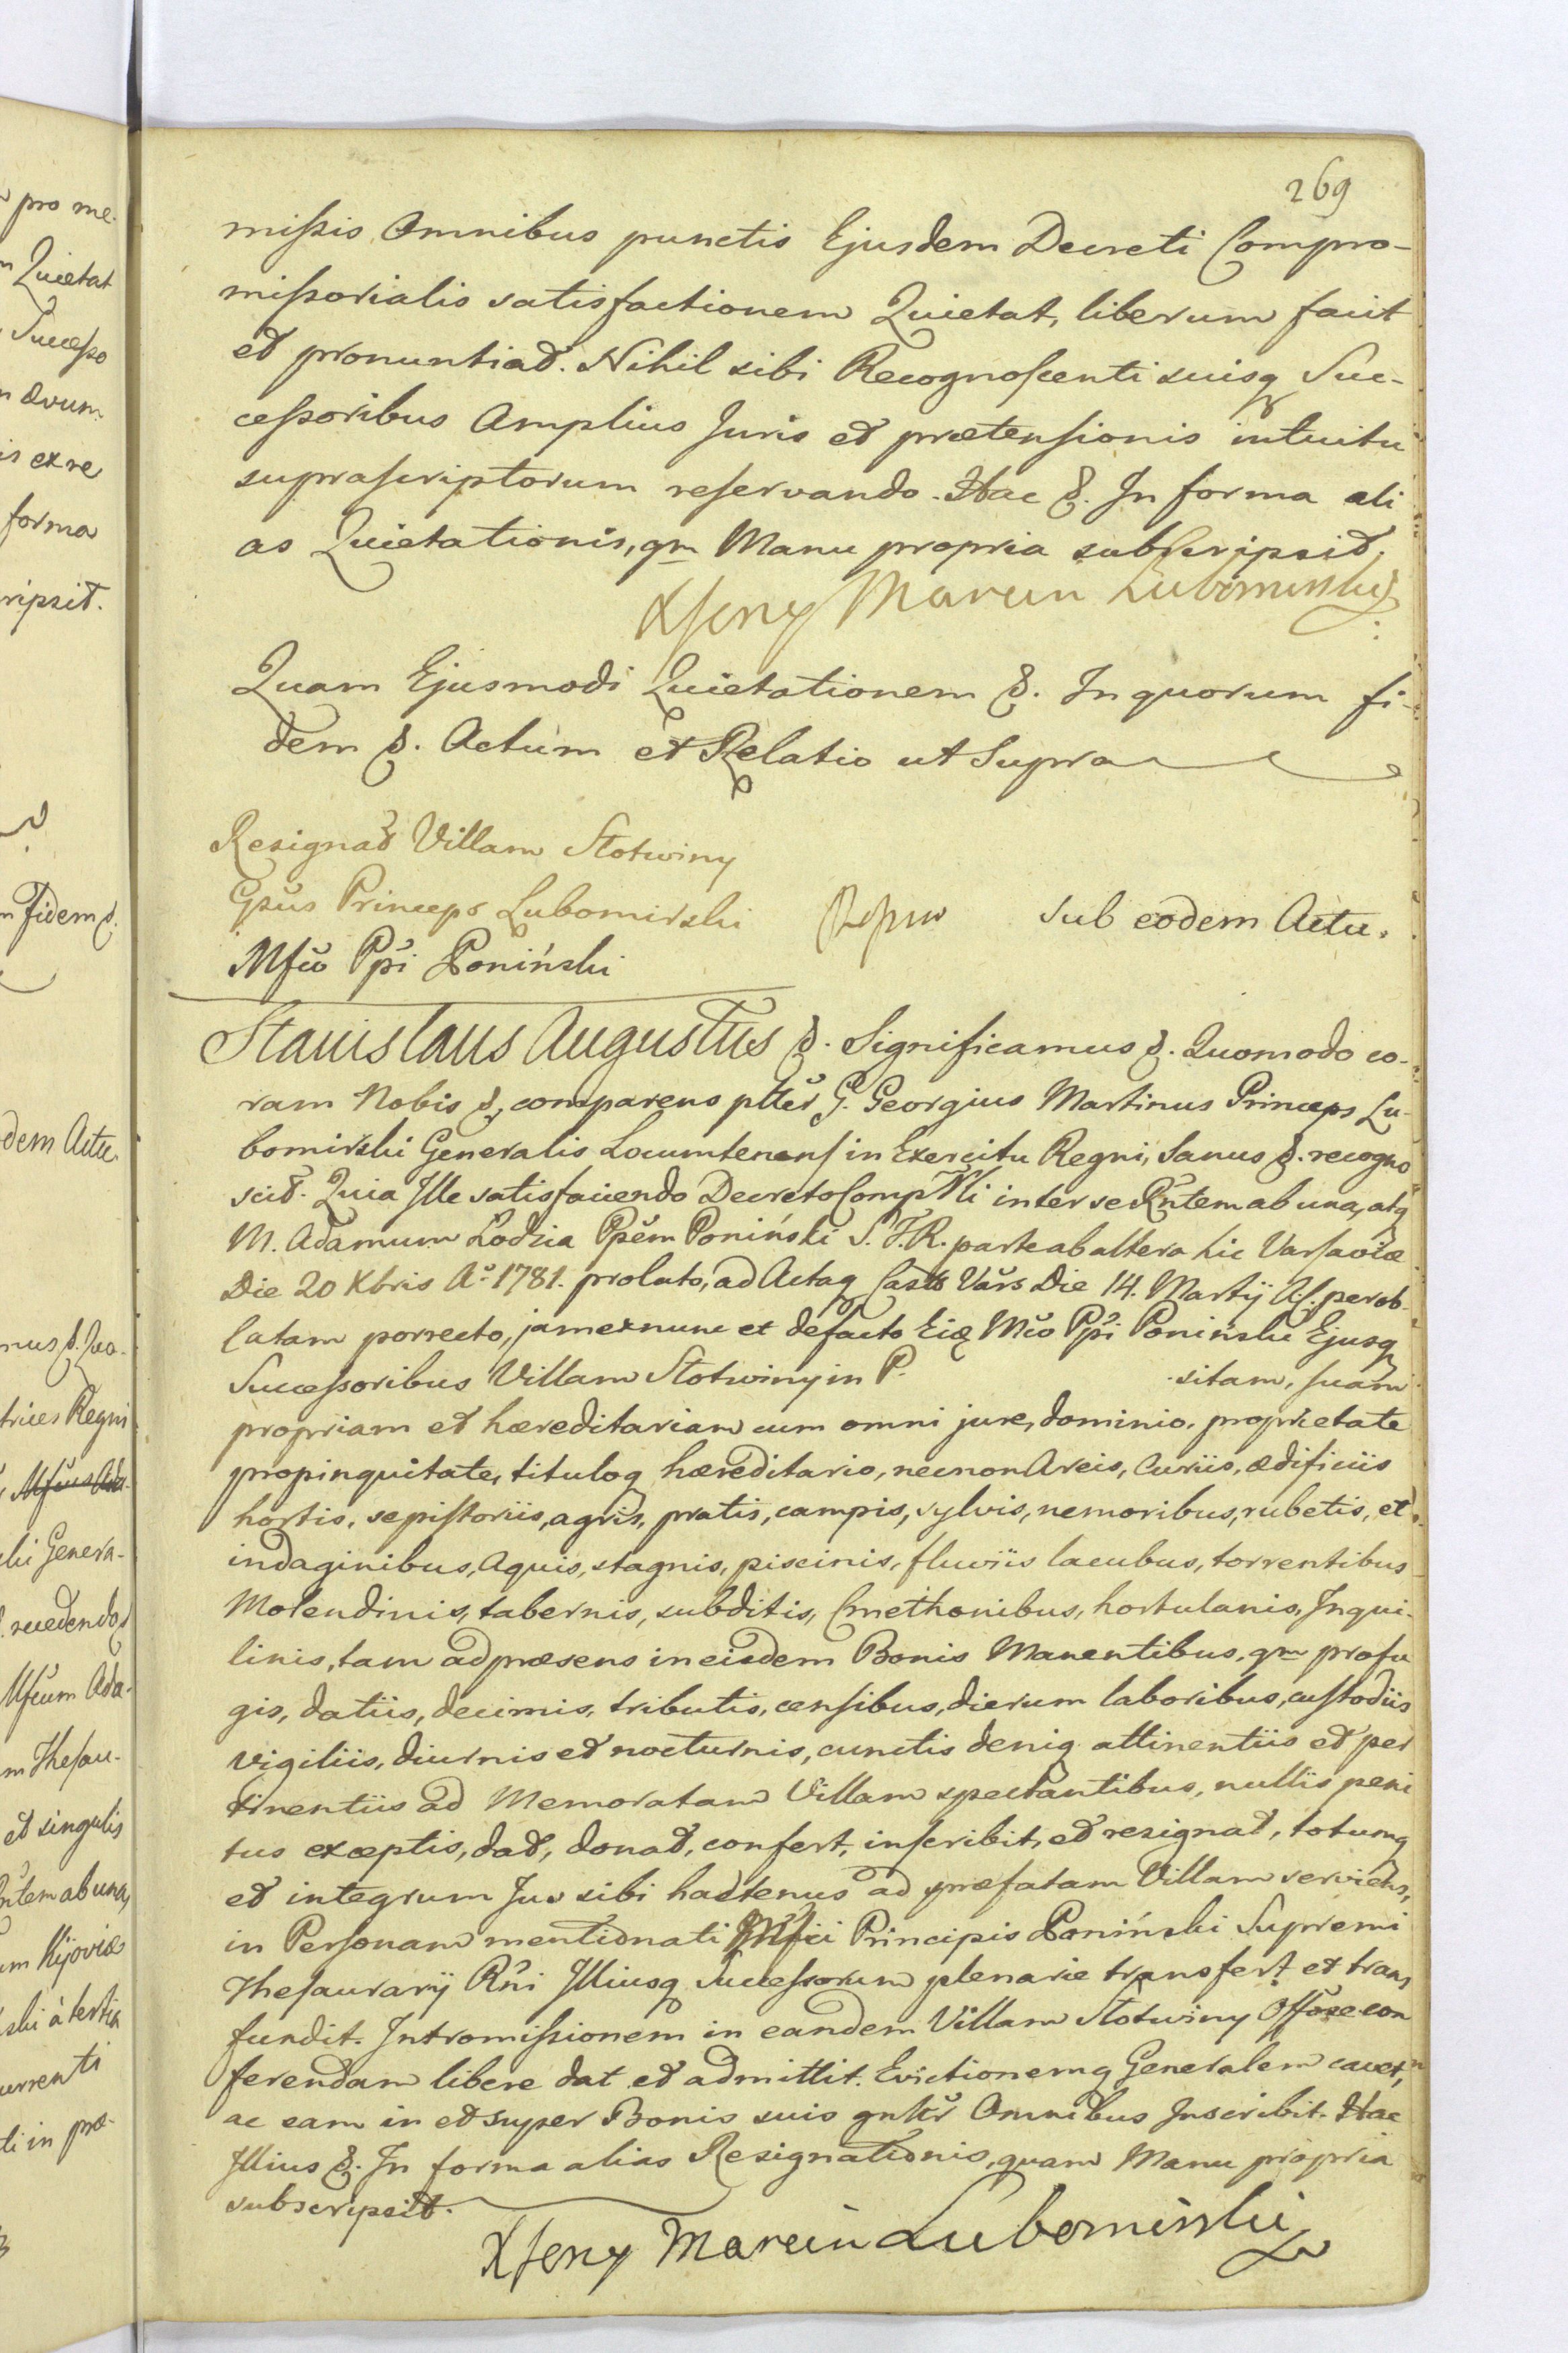 pro me-
Quietat
Successo
ævum
ex re
forma
ripsit.
Fidem &.
dem Actu.
mus &. Quo-
trices Regni
Genera-
Ada-
m Thesau-
et singulis
ntem ab una,
um Kijoviæ
ski à tertia
urrenti
ti in præ-
269
missis Omnibus punctis Ejusdem Decreti Compro-
missorialis satisfactionem Quietat, liberum facit
et pronuntiat. Nihil sibi Recognoscenti suisq Suc-
cessoribus Amplius Juris et prætensionis intuitu
suprascriptorum reservando. Hac &. In forma ali
as Quietationis, qm Manu propria subscripsit.
XJerzy Marcin Lubomirski
Quam Ejusmodi Quietationem &. In quorum fi-
dem &. Actum et Relatio ut Supra
Resignat Villam Słotwiny
Gsus Princeps Lubomirski
Mfco Ppi Poniński
Sub eodem Actu.
Stanislaus Augustus &. Significamus &. Quomodo co-
ram Nobis &, comparens plter G. Georgius Martinus Princeps Lu-
bomirski Generalis Locumtenens in Exercitu Regni, Sanus &. recogno
scit. Quia Ille satisfaciendo Decreto Comprlli inter se Rntem ab una, atq
M. Adamum Łodzia Ppem Poniński S. T. R. parte ab altera hic Varsaviæ
Die 20 Xbris Ao 1781. prolato, ad Actaq Castr Vars Die 14. Martij A. p. per ob-
latam porrecto, jam ex nunc et de facto Eidem Mco Ppi Poniński Ejusq
Successoribus Villam Słotwiny in P. sitam, suam
propriam et hæreditariam cum omni jure, dominio, proprietate
propinquitate, tituloq hæreditario, necnon Areis, Curiis, ædificiis
hortis, sepistoriis, agris, pratis, campis, sylvis, nemoribus, rubetis, et
indaginibus, Aquis, stagnis, piscinis, fluviis lacubus, torrentibus
Molendinis, tabernis, subditis, Cmethonibus, hortulanis, Inqui-
linis, tam ad præsens in eisdem Bonis Manentibus, qm profu
gis, datiis, decimis, tributis, censibus, dierum laboribus, custodiis
vigiliis, diurnis et nocturnis, cunctis deniq attinentiis et per
tinentiis ad Memoratam Villam spectantibus, nullis peni
tus exceptis, dat, donat, confert, inscribit, et resignat, totumq
et integrum Jus sibi hactenus ad præfatam Villam serviens,
in Personam mentionati Mfci Principis Poniński Supremi
Thesaurarij Rni Illiusq Successorum plenarie transfert et trans
fundit. Intromissionem in eandem Villam Słotwiny Offose con
ferendam libere dat et admittit. Evictionemq Generalem cavet,
ac eam in et super Bonis suis gnltr Omnibus Inscribit. Hac
Illius &. In forma alias Resignationis, quam Manu propria
subscripsit.
XJerzy Marcin Lubomirski